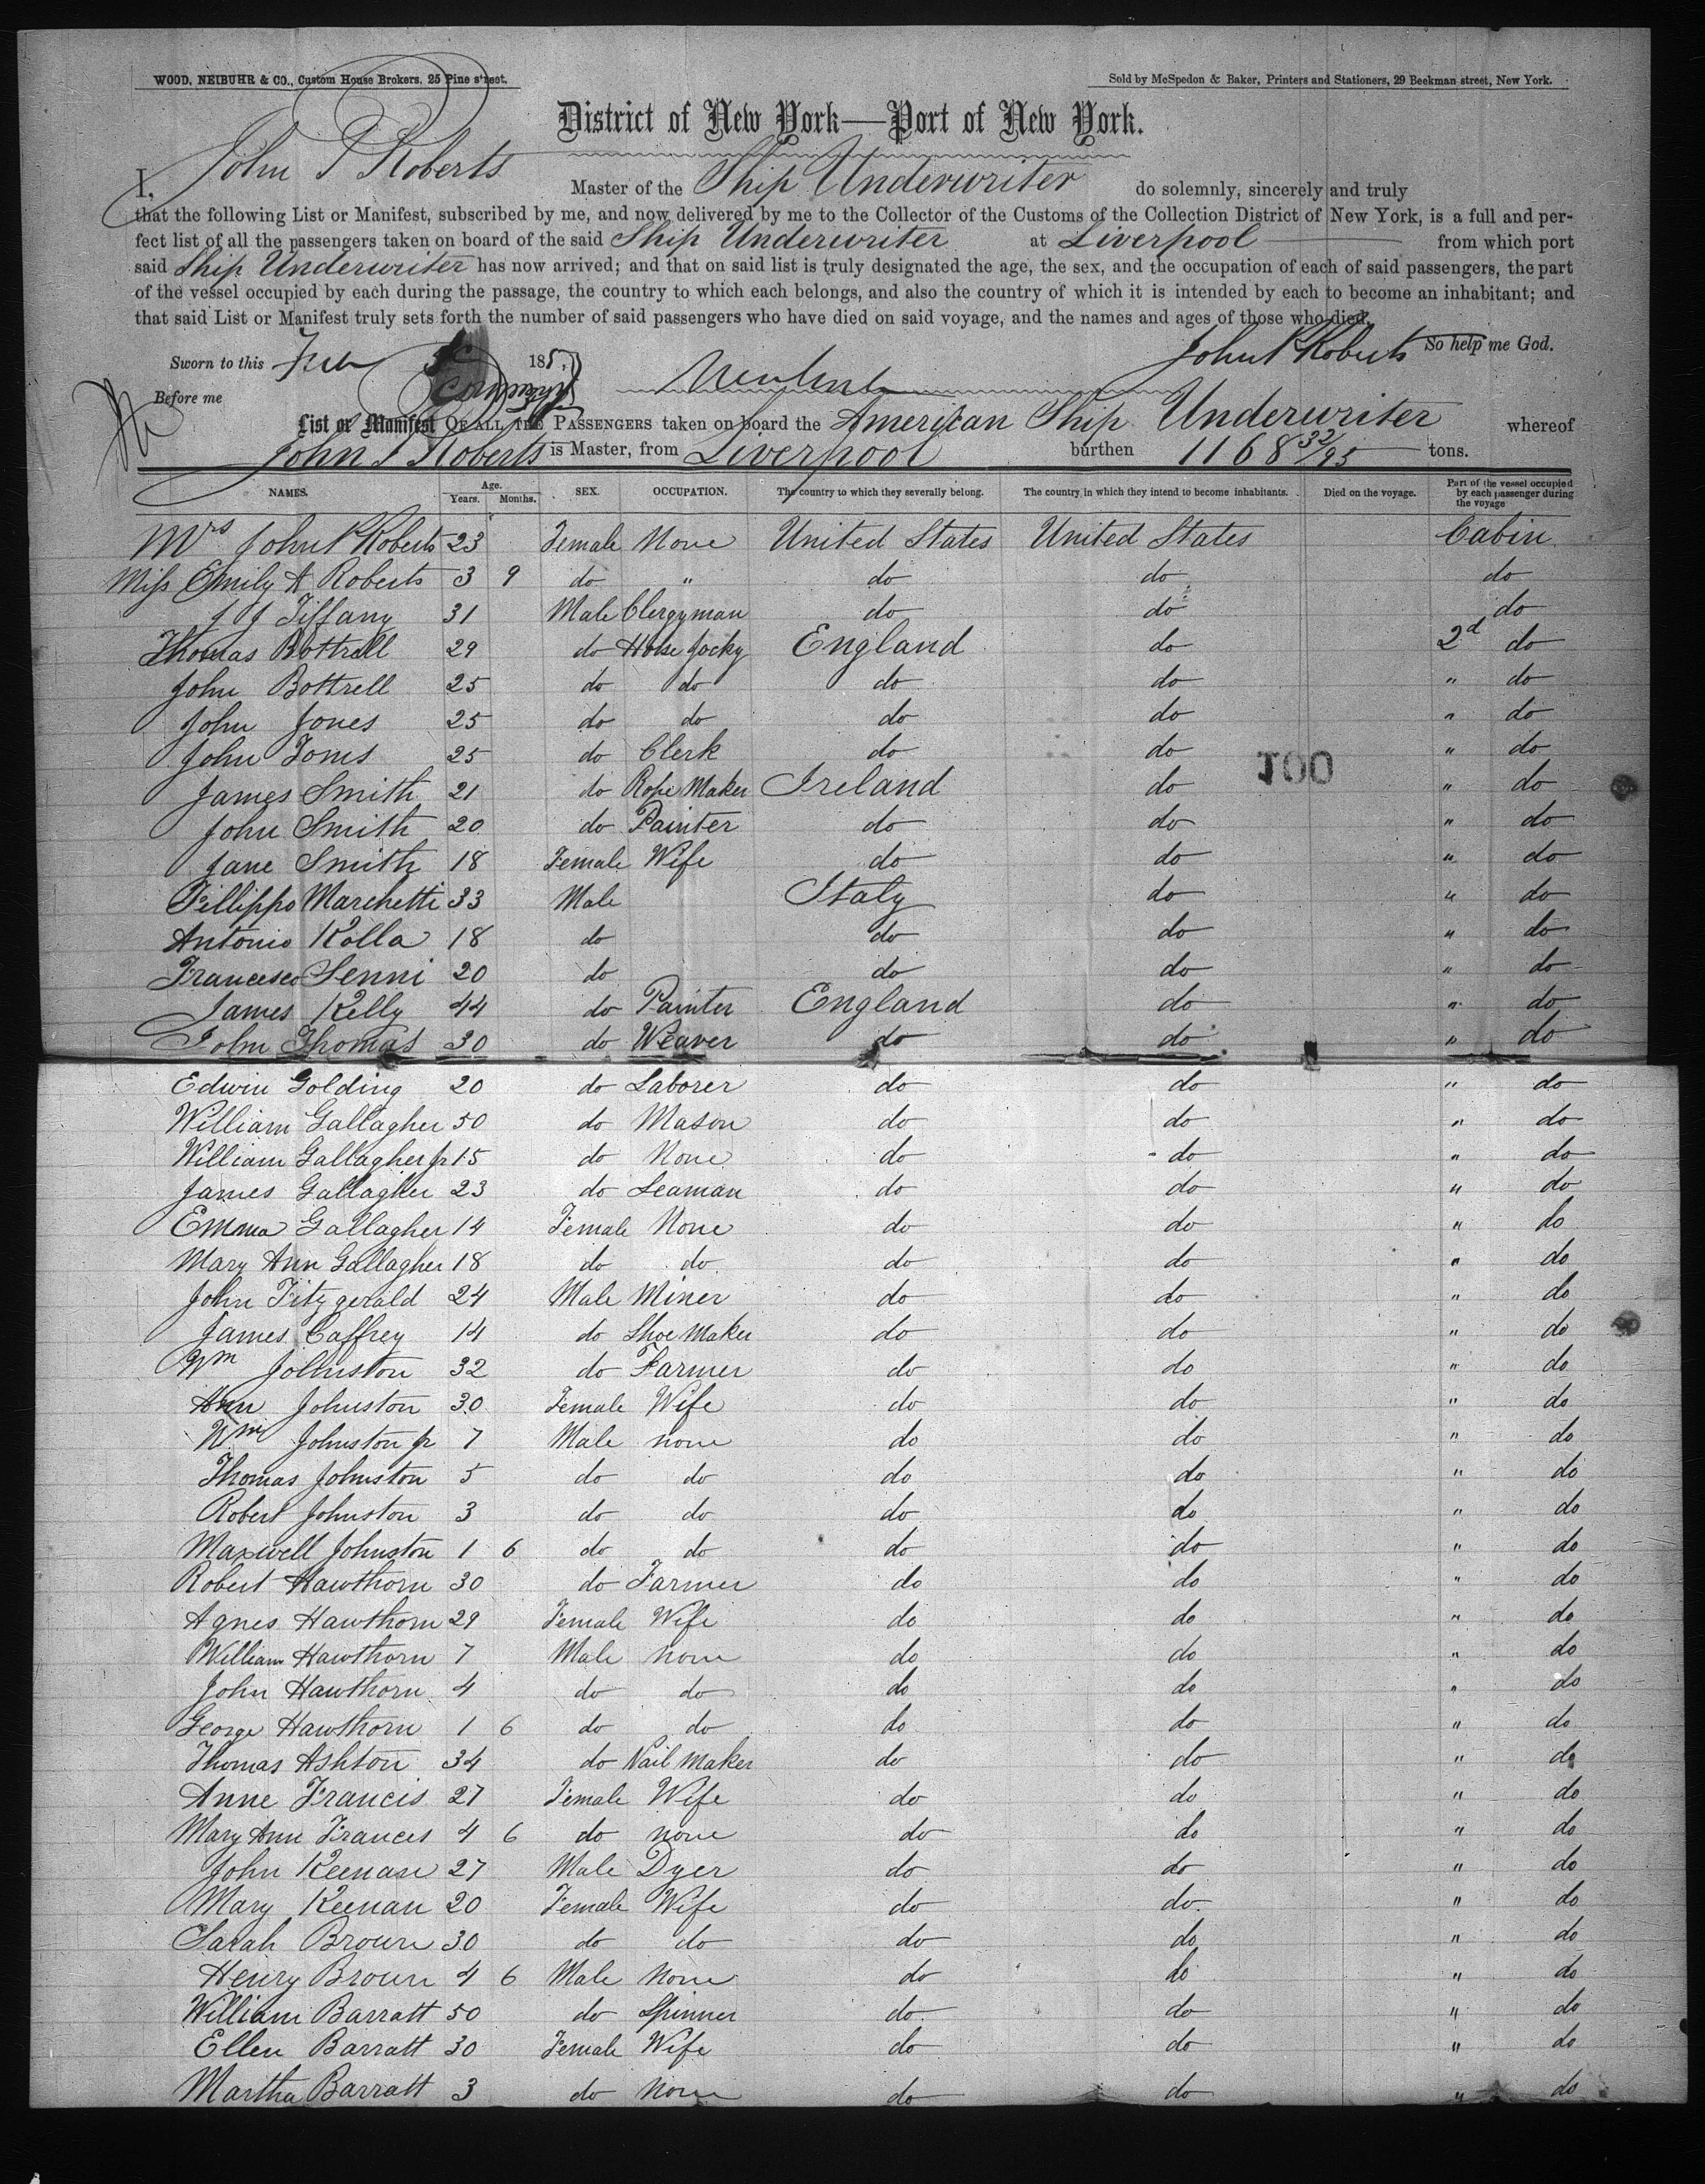 WOOD, NEIBUHR & CO., Custom House Brokers. 25 Pine street.
Sold by McSpedon & Baker, Printers and Stationers, 29 Beekman street, New York.
District of New York—Port of New York.
I, John P Roberts Master of the Ship Underwriter do solemnly, sincerely and truly
that the following List or Manifest, subscribed by me, and now delivered by me to the Collector of the Customs of the Collection District of New York, is a full and per-
fect list of all the passengers taken on board of the said Ship Underwriter at Liverpool from which port
said Ship Underwriter has now arrived; and that on said list is truly designated the age, the sex, and the occupation of each of said passengers, the part
of the vessel occupied by each during the passage, the country to which each belongs, and also the country of which it is intended by each to become an inhabitant; and
that said List or Manifest truly sets forth the number of said passengers who have died on said voyage, and the names and ages of those who died.
Sworn to this 185 John P Roberts So help me God.
Before me
List or Manifest OF ALL THE PASSENGERS taken on board the American Ship Underwriter whereof
John P Roberts is Master, from Liverpool burthen 1168 32/95 tons.
NAMES. Age. Years. Months. SEX. OCCUPATION. The country to which they severally belong. The country in which they intend to become inhabitants. Died on the voyage. Part of the vessel occupied by each passenger during the voyage
Mrs John P Roberts 23 Female None United States United States Cabin
Miss Emily A Roberts 3 9 do " do do do
J J Tiffany 31 Male Clergyman do do do
Thomas Bottrell 29 do Horse Jocky England do 2d do
John Bottrell 25 do do do do " do
John Jones 25 do do do do " do
John Jones 25 do Clerk do do " do
100
James Smith 21 do Rope Maker Ireland do " do
John Smith 20 do Painter do do " do
Jane Smith 18 Female Wife do do " do
Fillippo Marchetti 33 Male Italy do " do
Antonio Rolla 18 do do do " do
Francesco Senni 20 do do do " do
James Kelly 44 do Painter England do " do
John Thomas 30 do Weaver do do " do
Edwin Golding 20 do Laborer do do " do
William Gallagher 50 do Mason do do " do
William Gallagher Jr 15 do None do do " do
James Gallagher 23 do Seaman do do " do
Emma Gallagher 14 Female None do do " do
Mary Ann Gallagher 18 do do do do " do
John Fitzgerald 24 Male Miner do do " do
James Caffrey 14 do Shoe Maker do do " do
Wm Johnston 32 do Farmer do do " do
Ann Johnston 30 Female Wife do do " do
Wm Johnston Jr 7 Male none do do " do
Thomas Johnston 5 do do do do " do
Robert Johnston 3 do do do do " do
Maxwell Johnston 1 6 do do do do " do
Robert Hawthorn 30 do Farmer do do " do
Agnes Hawthorn 29 Female Wife do do " do
William Hawthorn 7 Male none do do " do
John Hawthorn 4 do do do do " do
George Hawthorn 1 6 do do do do " do
Thomas Ashton 34 do Nail Maker do do " do
Anne Francis 27 Female Wife do do " do
Mary Ann Frances 4 6 do none do do " do
John Keenan 27 Male Dyer do do " do
Mary Keenan 20 Female Wife do do " do
Sarah Brown 30 do do do do " do
Henry Brown 4 6 Male None do do " do
William Barratt 50 do Spinner do do " do
Ellen Barratt 30 Female Wife do do " do
Martha Barratt 3 do None do do " do